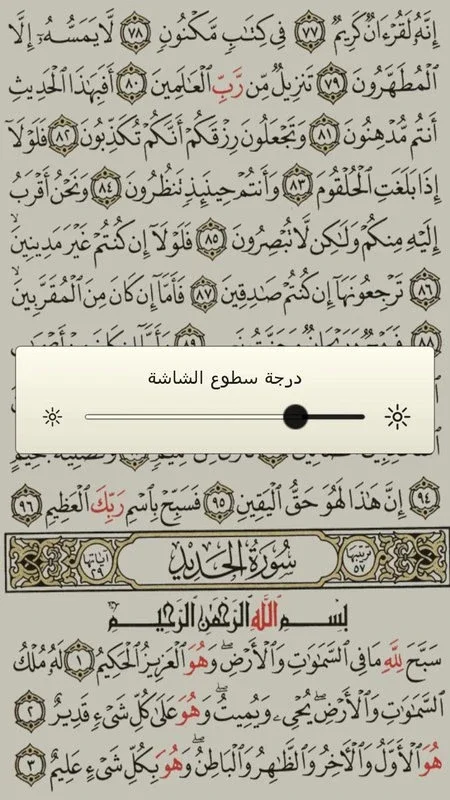 إِنَّهُ لَقُرْءَانٌ كَرِيمٌ ٧٧ فِى كِتَٰبٍ مَّكْنُونٍ ٧٨ لَّا يَمَسُّهُۥٓ إِلَّا
ٱلْمُطَهَّرُونَ ٧٩ تَنزِيلٌ مِّن رَّبِّ ٱلْعَٰلَمِينَ ٨٠ أَفَبِهَٰذَا ٱلْحَدِيثِ
أَنتُم مُّدْهِنُونَ ٨١ وَتَجْعَلُونَ رِزْقَكُمْ أَنَّكُمْ تُكَذِّبُونَ ٨٢ فَلَوْلَآ
إِذَا بَلَغَتِ ٱلْحُلْقُومَ ٨٣ وَأَنتُمْ حِينَئِذٍ تَنظُرُونَ ٨٤ وَنَحْنُ أَقْرَبُ
إِلَيْهِ مِنكُمْ وَلَٰكِن لَّا تُبْصِرُونَ ٨٥ فَلَوْلَآ إِن كُنتُمْ غَيْرَ مَدِينِينَ
٨٦ تَرْجِعُونَهَآ إِن كُنتُمْ صَٰدِقِينَ ٨٧ فَأَمَّآ إِن كَانَ مِنَ ٱلْمُقَرَّبِينَ
٨٨
٨٩
درجة سطوع الشاشة
٩٤ إِنَّ هَٰذَا لَهُوَ حَقُّ ٱلْيَقِينِ ٩٥ فَسَبِّحْ بِٱسْمِ رَبِّكَ ٱلْعَظِيمِ ٩٦
ترتيبها ٥٧ سُورَةُ الحَدِيدِ آياتها ٢٩
بِسْمِ ٱللَّهِ ٱلرَّحْمَٰنِ ٱلرَّحِيمِ
سَبَّحَ لِلَّهِ مَا فِى ٱلسَّمَٰوَٰتِ وَٱلْأَرْضِ ۖ وَهُوَ ٱلْعَزِيزُ ٱلْحَكِيمُ ١ لَهُۥ مُلْكُ
ٱلسَّمَٰوَٰتِ وَٱلْأَرْضِ ۖ يُحْىِۦ وَيُمِيتُ ۖ وَهُوَ عَلَىٰ كُلِّ شَىْءٍ قَدِيرٌ ٢
هُوَ ٱلْأَوَّلُ وَٱلْءَاخِرُ وَٱلظَّٰهِرُ وَٱلْبَاطِنُ ۖ وَهُوَ بِكُلِّ شَىْءٍ عَلِيمٌ ٣